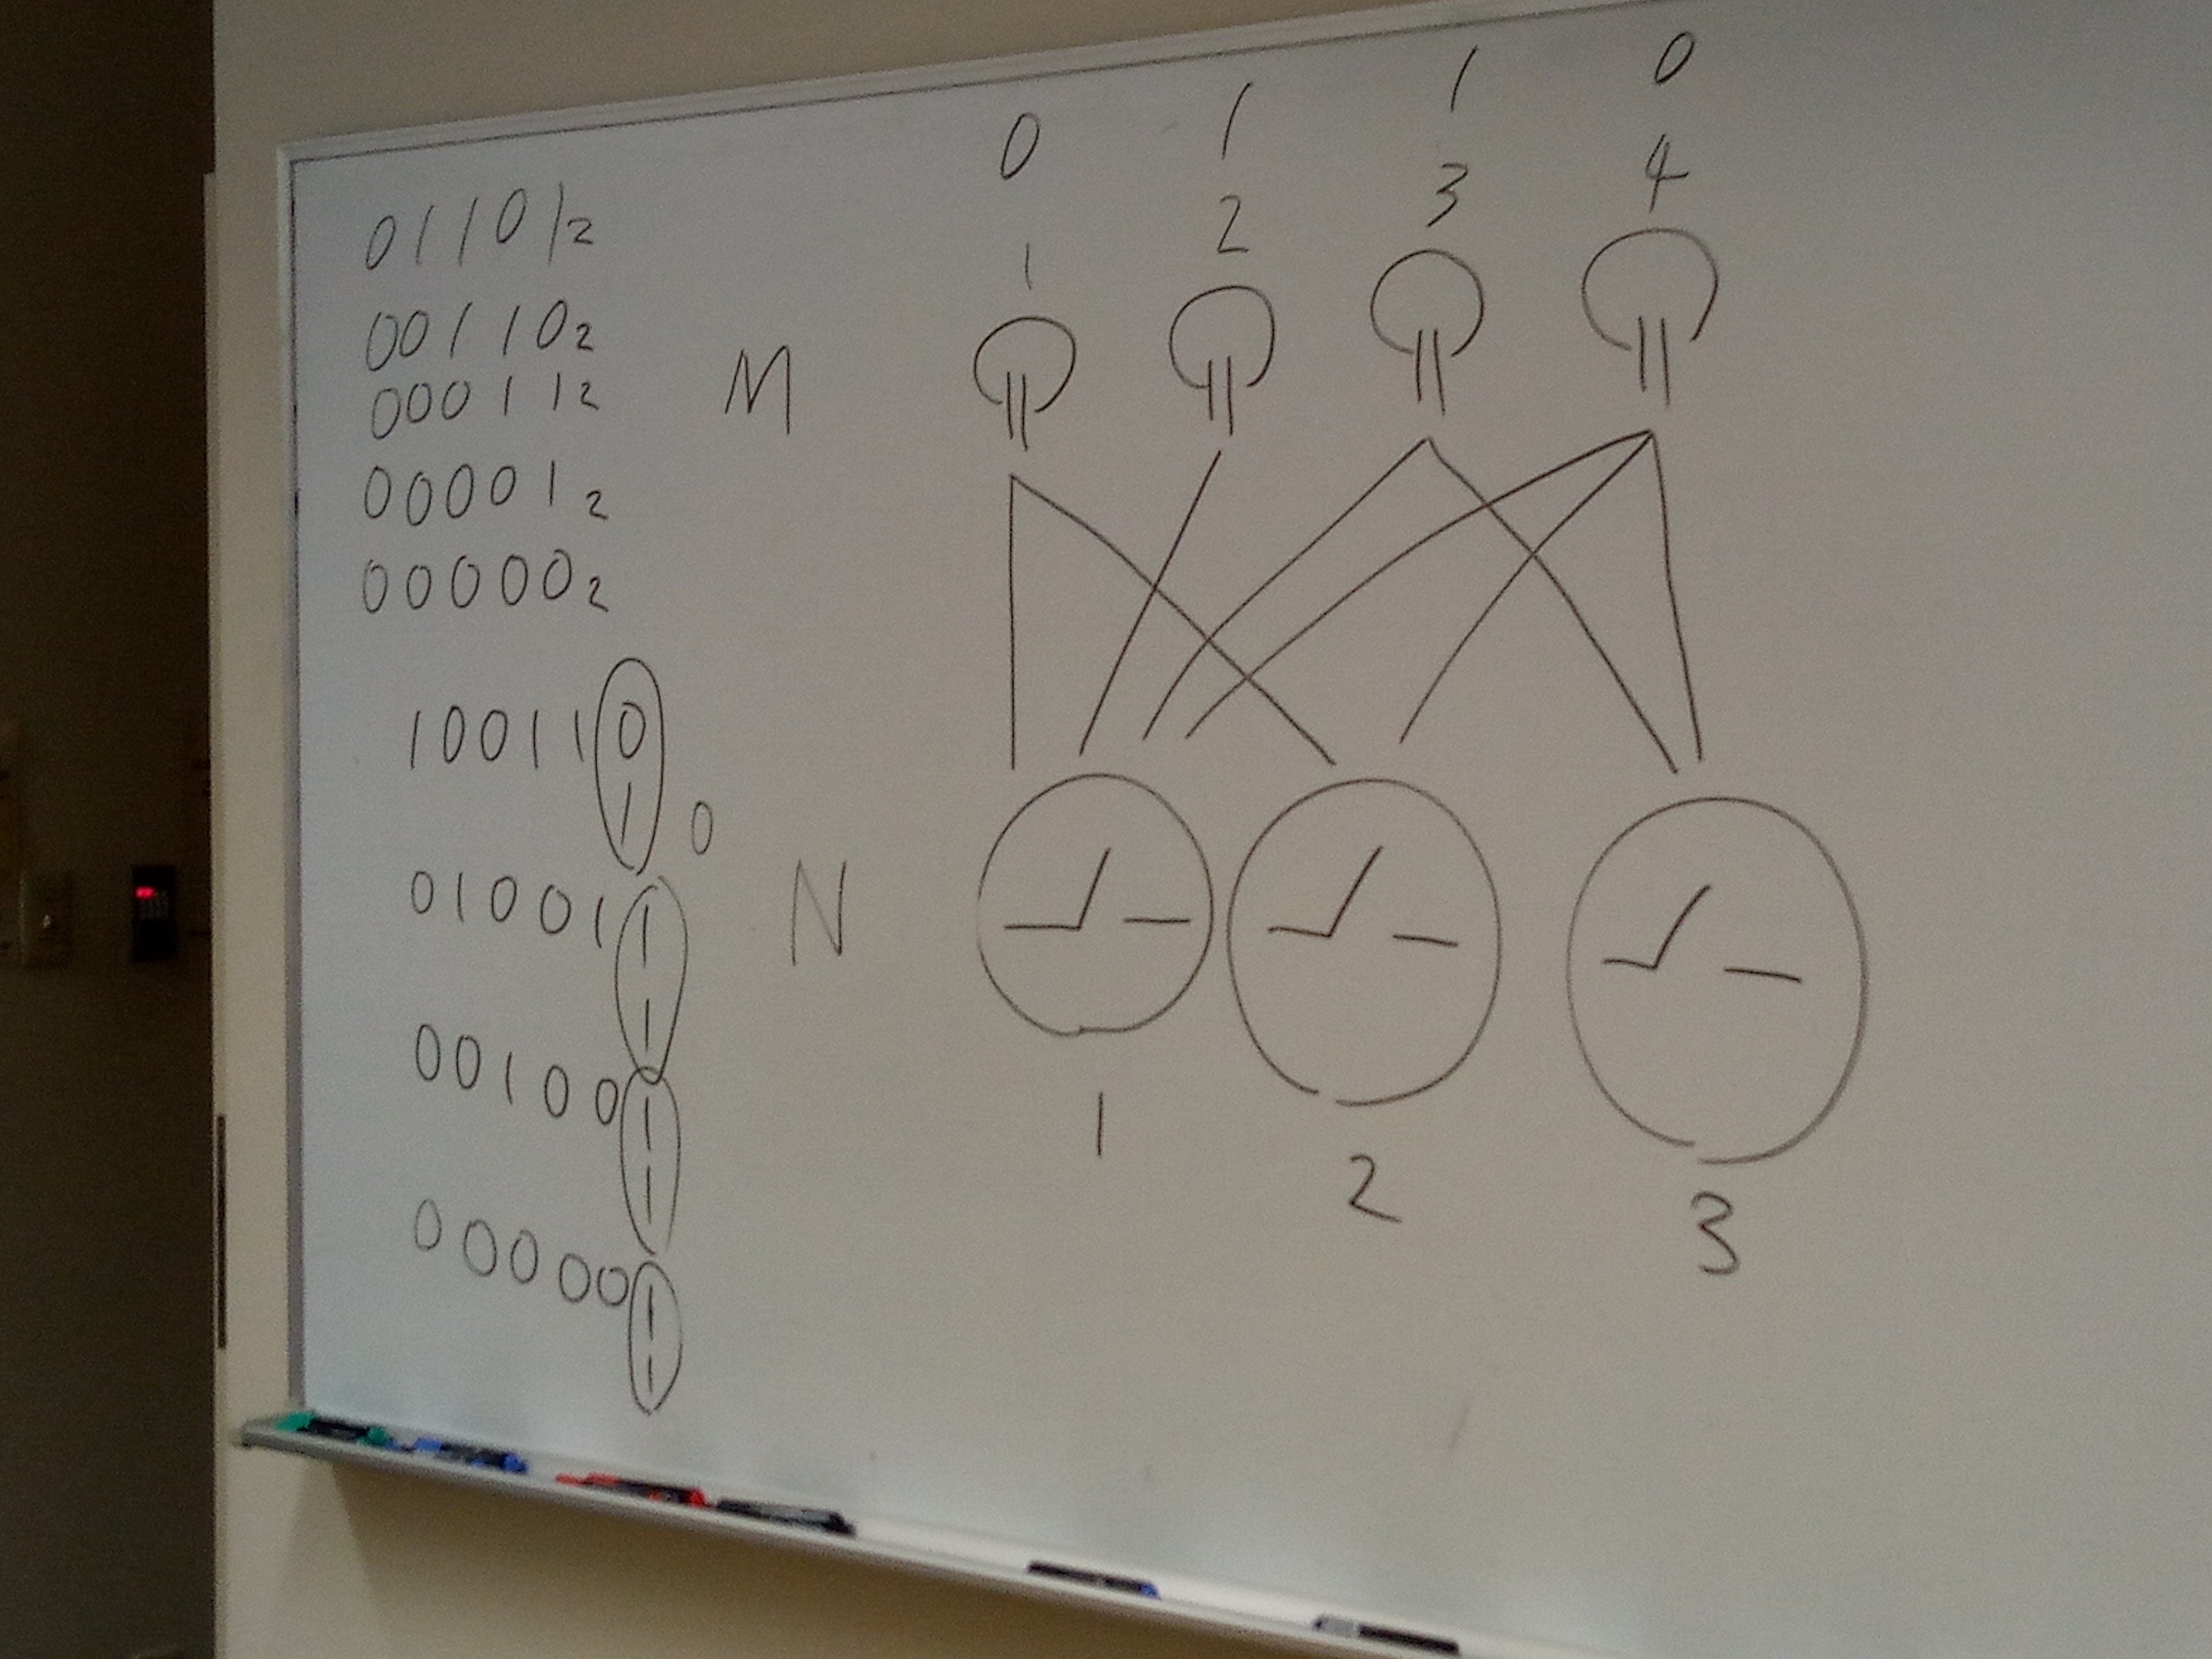 01101₂
00110₂
00011₂
00001₂
00000₂
100110
1
0
010011
1
001001
1
000001
1
0 1 1 0
1 2 3 4
M
N
1 2 3